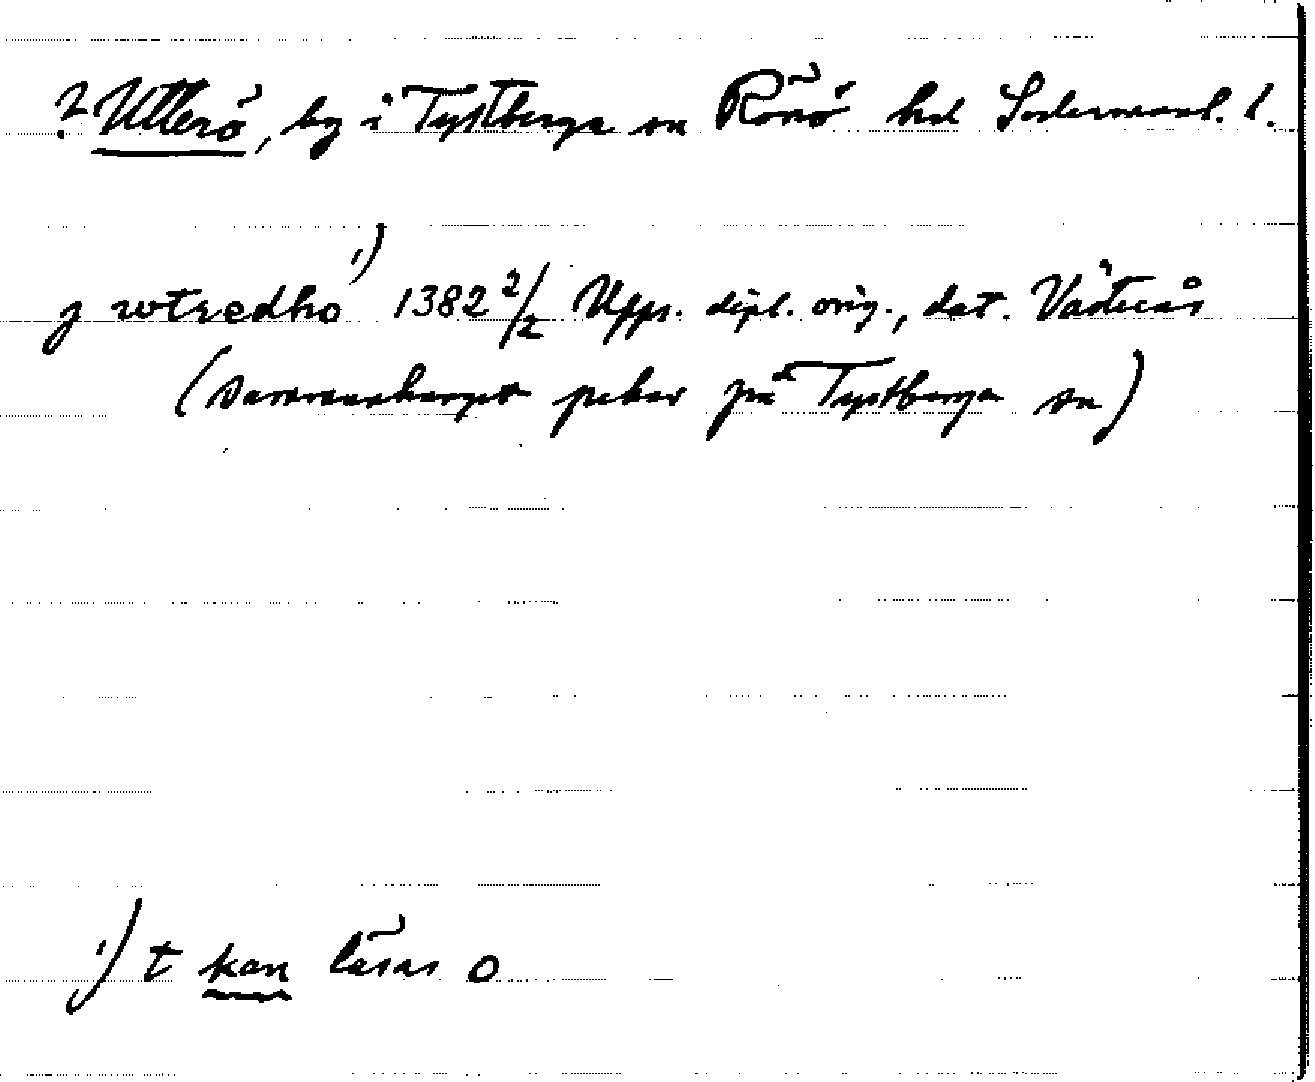 ? Utterö, by i Tystberga sn Rönö hd Södermanl. l.
j wtredho ¹) 1382 2/2 Upps. dipl. orig., dat. Västerås
(sammanhanget pekar på Tystberga sn)
¹) t kan läsas o